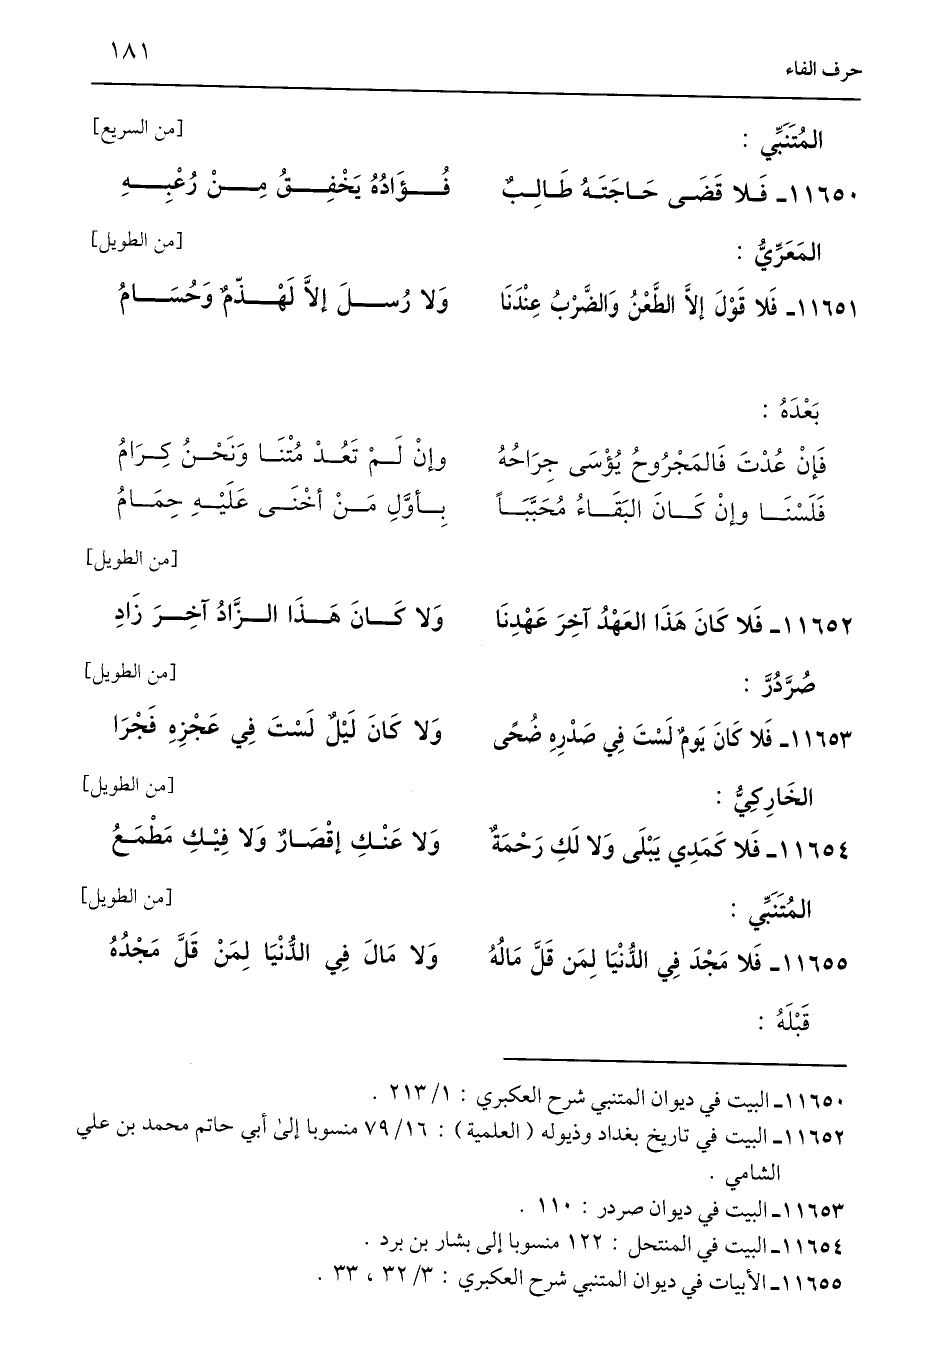 ١٨١
حرف الفاء
المُتَنَبِّي : [من السريع]
١١٦٥٠ـ فَلا قَضَى حَاجَتَهُ طَالِبٌ فُـؤَادُهُ يَخْفِـقُ مِـنْ رُعْبِـهِ
المَعَرِّيُّ : [من الطويل]
١١٦٥١ـ فَلا قَوْلَ إلاَّ الطَّعْنُ وَالضَّرْبُ عِنْدَنَا وَلا رُسـلَ إلاَّ لَهْـذَمٌ وَحُسَـامُ
بَعْدَهُ :
فَإنْ عُدْتَ فَالمَجْرُوحُ يُؤْسَى جِرَاحُهُ وإنْ لَـمْ تَعُـدْ مُتْنَـا وَنَحْـنُ كِـرَامُ
فَلَسْنَـا وإنْ كَـانَ البَقَـاءُ مُحَبَّبَـاً بِـأوَّلِ مَـنْ أخْنَـى عَلَيْـهِ حِمَـامُ
[من الطويل]
١١٦٥٢ـ فَلا كَانَ هَذَا العَهْدُ آخِرَ عَهْدِنَا وَلا كَـانَ هَـذَا الـزَّادُ آخِـرَ زَادِ
صُرَّدُرَّ : [من الطويل]
١١٦٥٣ـ فَلا كَانَ يَومٌ لَسْتَ فِي صَدْرِهِ ضُحًى وَلا كَانَ لَيْلٌ لَسْتَ فِي عَجْزِهِ فَجْرَا
الخَارِكِيُّ : [من الطويل]
١١٦٥٤ـ فَلا كَمَدِي يَبْلَى وَلا لَكِ رَحْمَةٌ وَلا عَنْـكِ إقْصَـارٌ وَلا فِيْـكِ مَطْمَـعُ
المُتَنَبِّي : [من الطويل]
١١٦٥٥ـ فَلا مَجْدَ فِي الدُّنْيَا لِمَن قَلَّ مَالُهُ وَلا مَالَ فِي الدُّنْيَا لِمَنْ قَلَّ مَجْدُهُ
قَبْلَهُ :
١١٦٥٠ـ البيت في ديوان المتنبي شرح العكبري : ١/ ٢١٣ .
١١٦٥٢ـ البيت في تاريخ بغداد وذيوله ( العلمية ) : ١٦/ ٧٩ منسوبا إلىٰ أبي حاتم محمد بن علي
الشامي .
١١٦٥٣ـ البيت في ديوان صردر : ١١٠ .
١١٦٥٤ـ البيت في المنتحل : ١٢٢ منسوبا إلى بشار بن برد .
١١٦٥٥ـ الأبيات في ديوان المتنبي شرح العكبري : ٣/ ٣٢ ، ٣٣ .